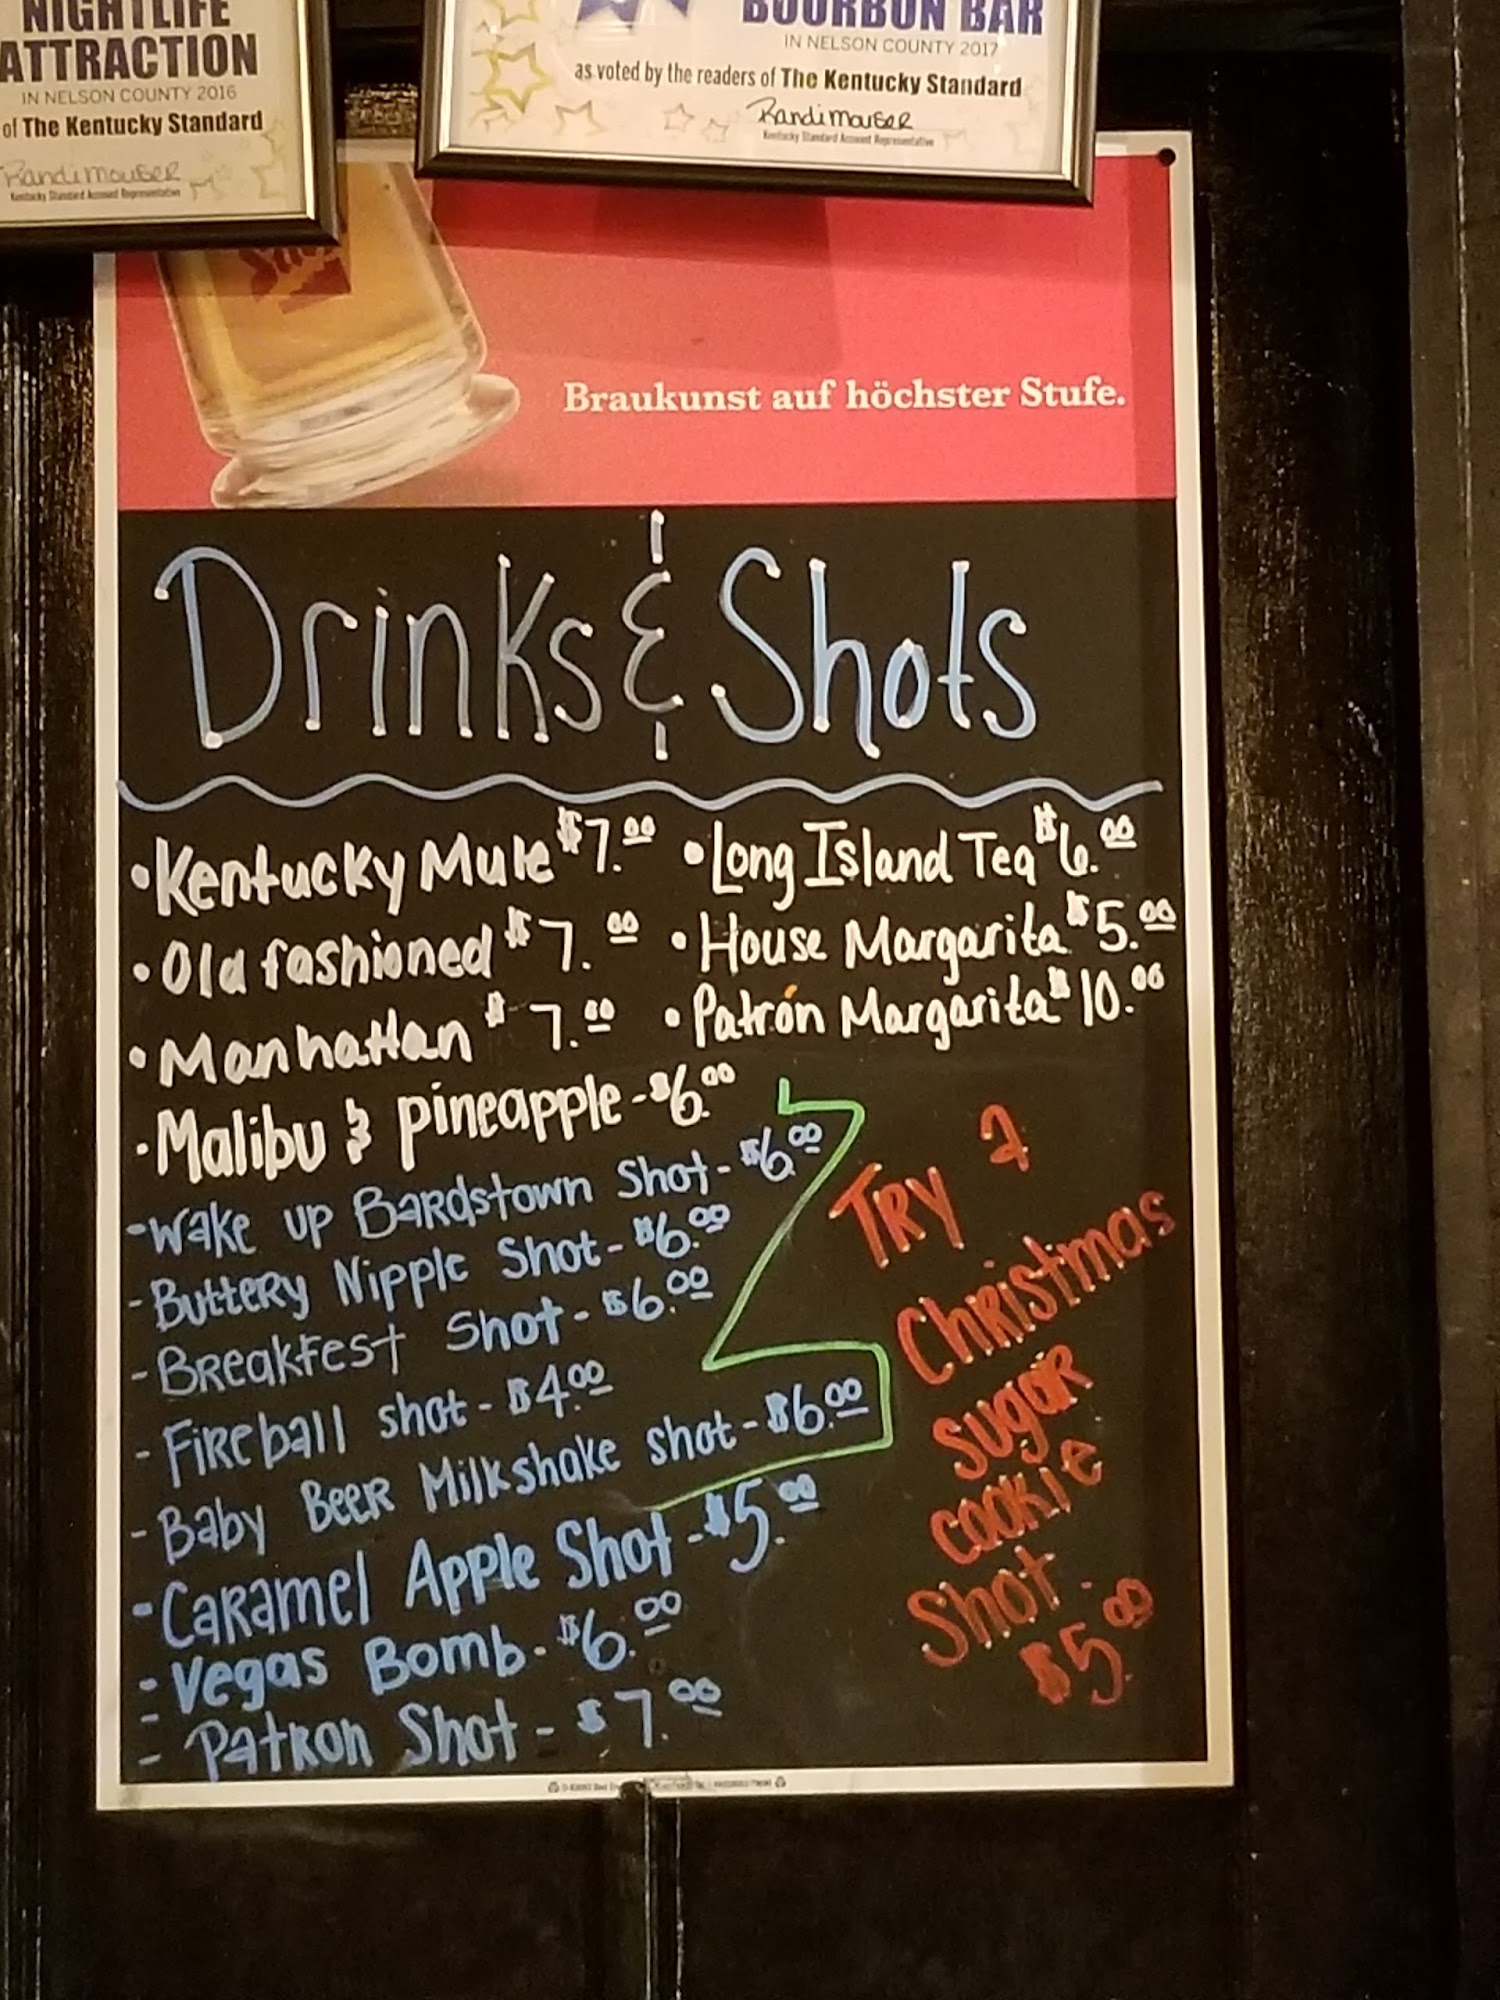 NIGHTLIFE
ATTRACTION
IN NELSON COUNTY 2016
of The Kentucky Standard
Randi Mouser
Kentucky Standard Account Representative
BOURBON BAR
IN NELSON COUNTY 2017
as voted by the readers of The Kentucky Standard
Randi Mouser
Kentucky Standard Account Representative
Braukunst auf höchster Stufe.
Drinks & Shots
•Kentucky Mule $7.00 •Long Island Tea $6.00
•Old fashioned $7.00 •House Margarita $5.00
•Manhattan $7.00 •Patrón Margarita $10.00
•Malibu & pineapple - $6.00
-Wake up Bardstown Shot - $6.00
-Buttery Nipple Shot - $6.00
-Breakfest Shot - $6.00
-Fireball shot - $4.00
-Baby Beer Milkshake shot - $6.00
-Caramel Apple Shot - $5.00
-Vegas Bomb - $6.00
-Patron Shot - $7.00
Try a
Christmas
sugar
cookie
Shot
$5.00